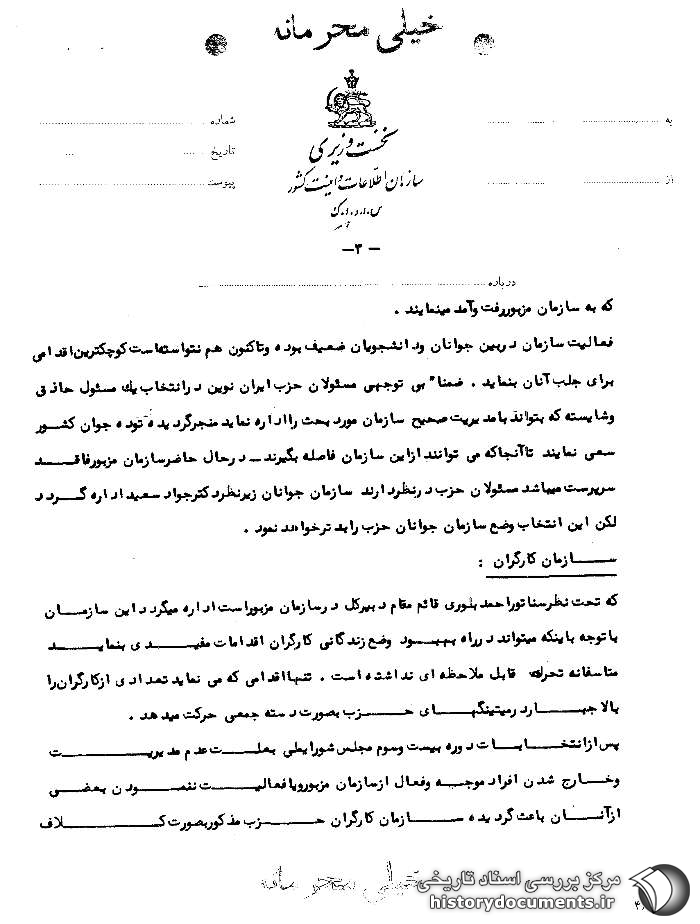 خیلی محرمانه
نخست وزیری
سازمان اطلاعات و امنیت کشور
س.ا.و.ا.ک
به
از
شماره
تاریخ
پیوست
-۳-
درباره
که به سازمان مزبور رفت وآمد مینمایند .
فعالیت سازمان دربین جوانان ودانشجویان ضعیف بوده وتاکنون هم نتوانسته‌است کوچکترین اقدامی
برای جلب آنان بنماید . ضمنا" بی توجهی مسئولان حزب ایران نوین درانتخاب یك مسئول حاذق
وشایسته که بتواند بامدیریت صحیح سازمان مورد بحث رااداره نماید منجرگردیده توده جوان کشور
سعی نمایند تاآنجاکه می توانند ازاین سازمان فاصله بگیرند ـ درحال حاضرسازمان مزبورفاقد
سرپرست میباشد مسئولان حزب درنظردارند سازمان جوانان زیرنظردکترجواد سعید اداره گردد
لکن این انتخاب وضع سازمان جوانان حزب رابدترخواهد نمود .
سازمان کارگران :
که تحت نظرسناتوراحمد بلوری قائم مقام دبیرکل درسازمان مزبوراست اداره میگردد این سازمان
با توجه باینکه میتواند درراه بهبود وضع زندگانی کارگران اقدامات مفیدی بنماید
متاسفانه تحرك قابل ملاحظه ای نداشته است . تنهااقدامی که می نماید تعدادی ازکارگران را
بالاجبار درمیتینگهای حزب بصورت دسته جمعی حرکت میدهد .
پس ازانتخابات دوره بیست وسوم مجلس شورایملی بعلت عدم مدیریت
وخارج شدن افراد موجه وفعال ازسازمان مزبورویافعالیت ننمودن بعضی
ازآنان باعث گردیده سازمان کارگران حزب مذکوربصورت کلاف
خیلی محرمانه
مرکز بررسی اسناد تاریخی
historydocuments.ir
۴